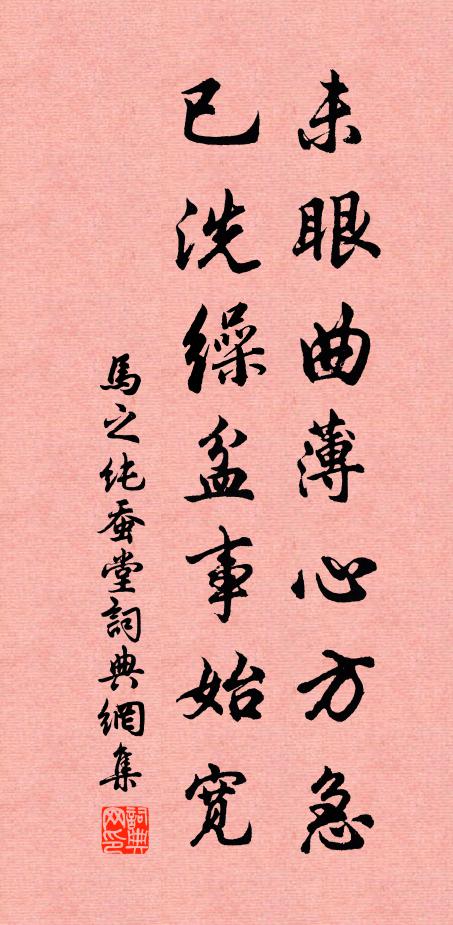 未眠曲薄心方急
已洗繰盆事始寬
馬之純蚕堂詞典網集
詞典网印